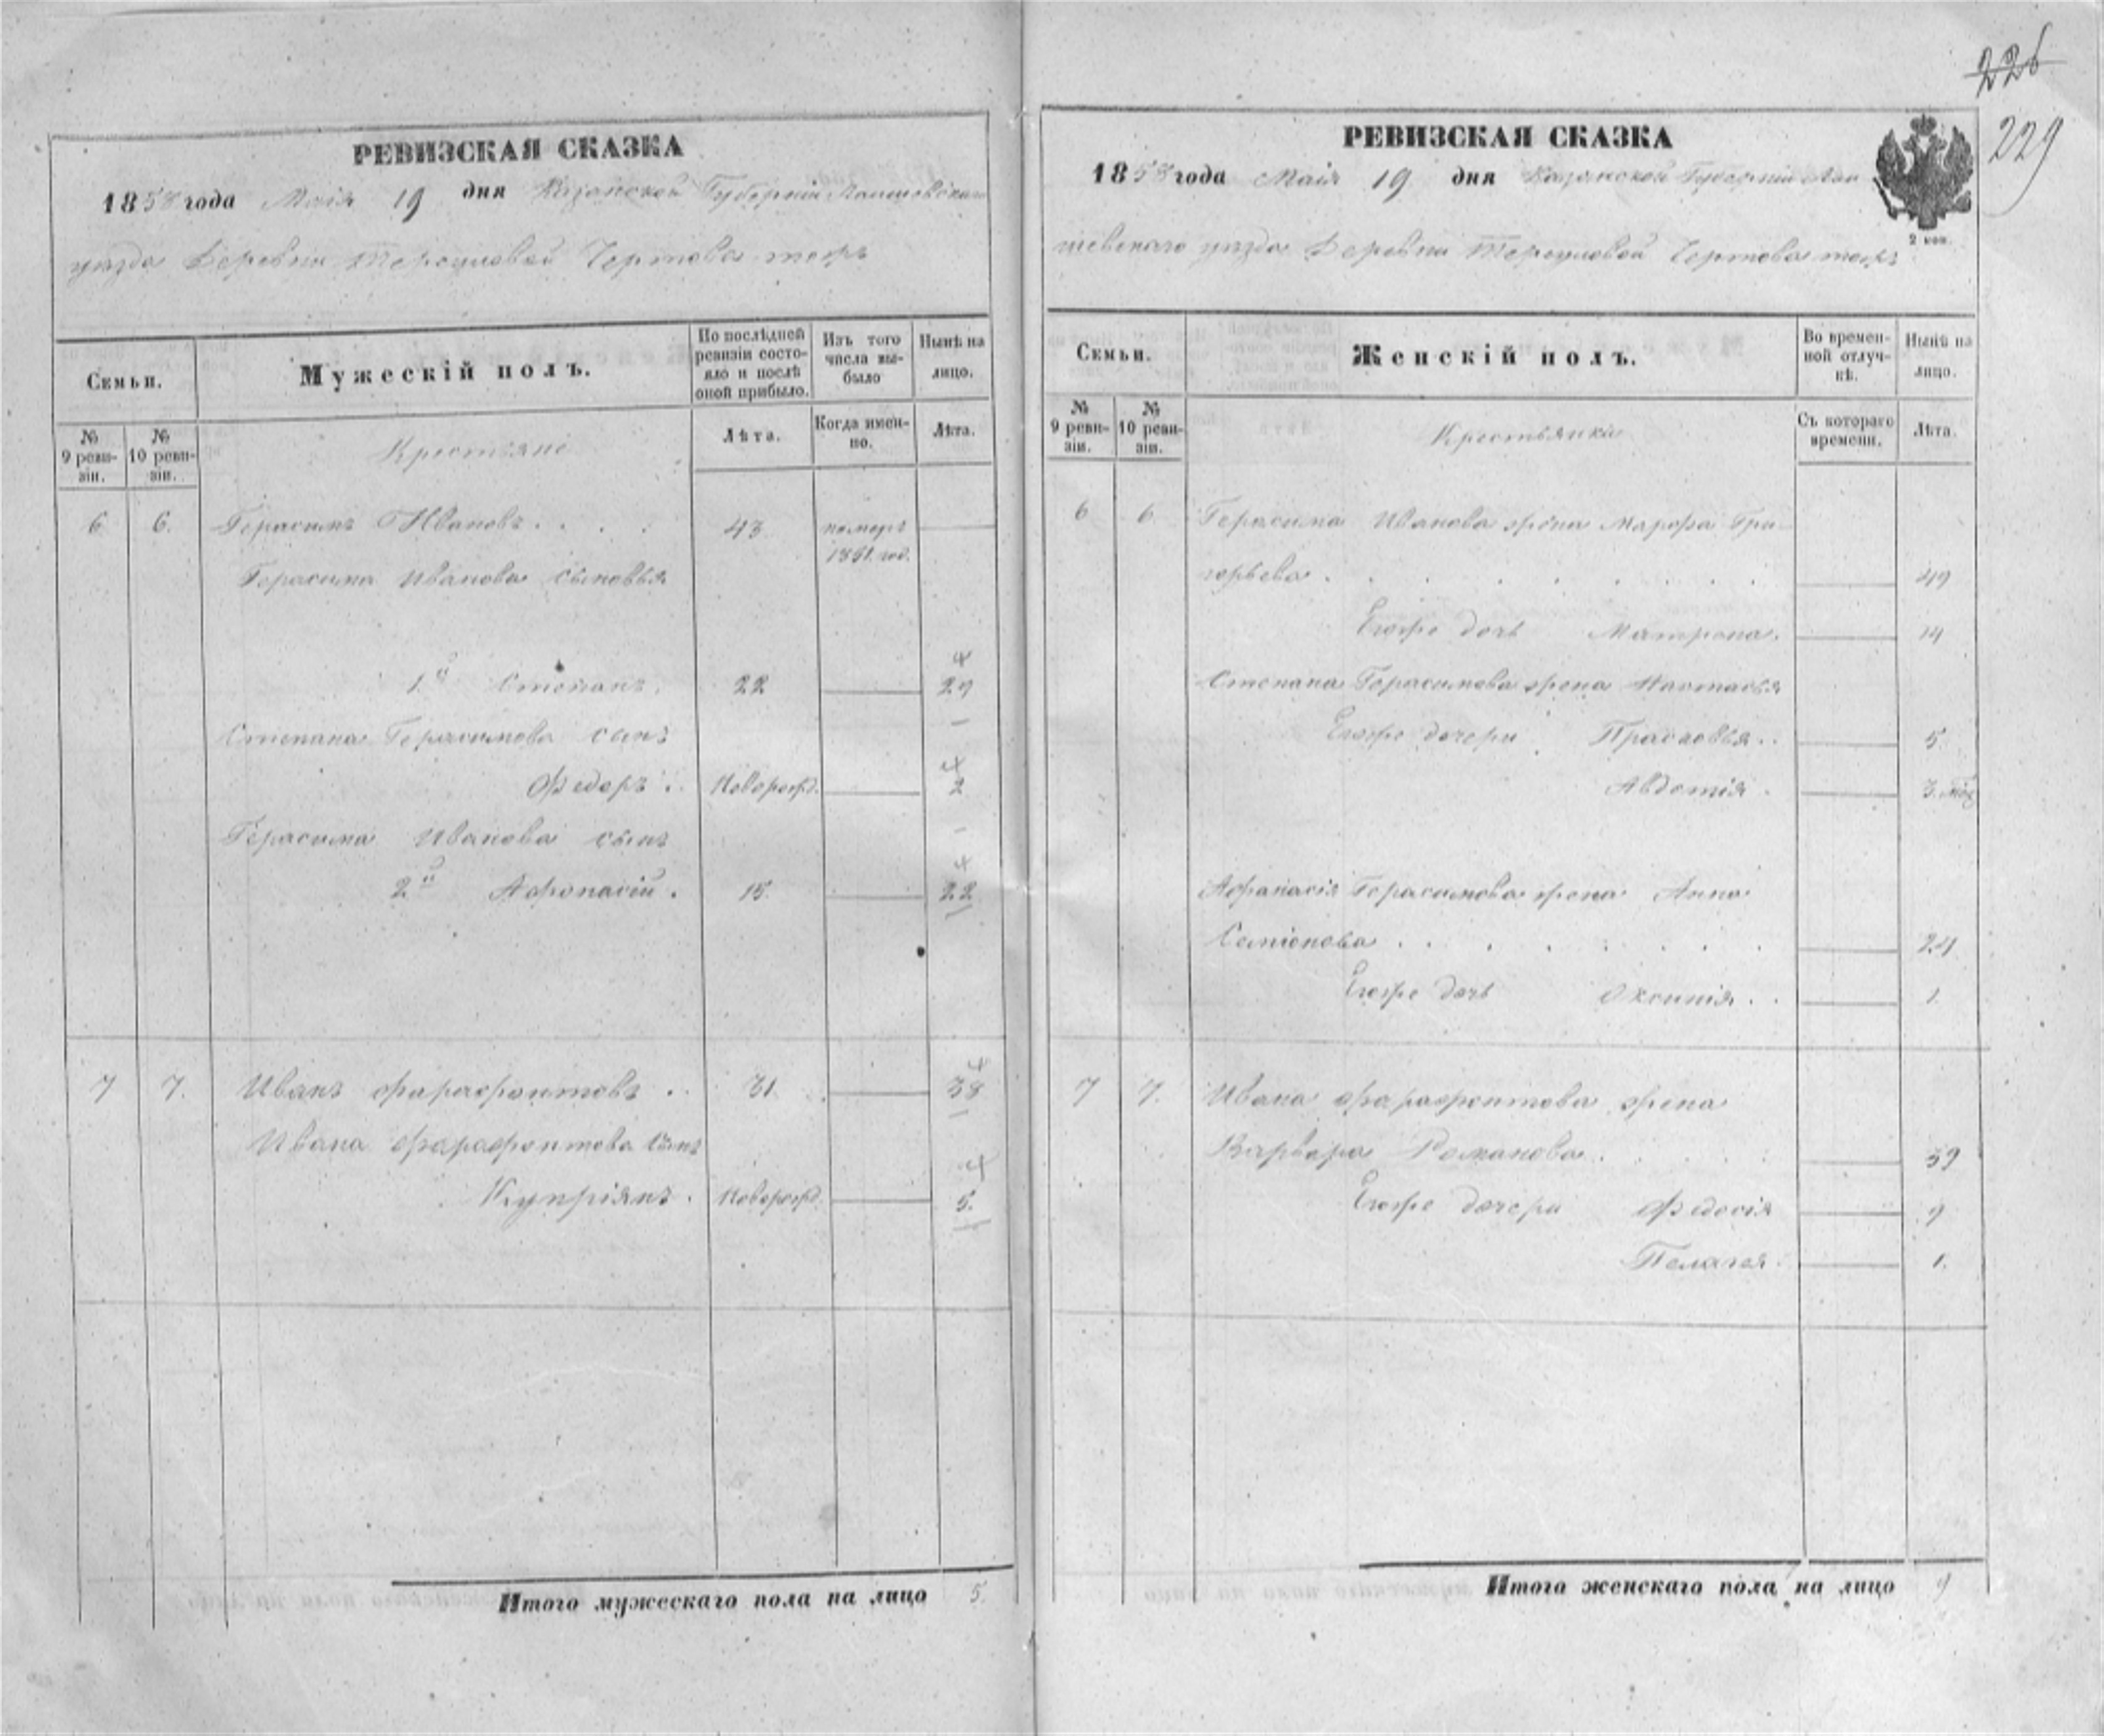 226
229
РЕВИЗСКАЯ СКАЗКА
1858 года Маія 19 дня Казанской Губерніи Лаишевскаго
уезда Деревни Чертова тожъ
Семьи.
Мужескій полъ.
По послѣдней ревизіи состояло и послѣ оной прибыло.
Изъ того числа выбыло
Нынѣ на лицо.
№ 9 ревизіи.
№ 10 ревизіи.
Крестьяне
Лѣта.
Когда именно.
Лѣта.
6 6. Герасимъ Ивановъ 43 померъ 1851. год.
Герасима Иванова сыновья
1й Степанъ. 22 29
Степана Герасимова сынъ
Федоръ. Новорожд. 2
Герасима Иванова сынъ
2й Афонасій. 15 22
7 7. Иванъ Фарафонтовъ 31. 38
Ивана Фарафонтова сынъ
Купріянъ. Новорожд. 5.
Итого мужескаго пола на лицо 5.
РЕВИЗСКАЯ СКАЗКА
1858 года Маія 19 дня Казанской Губерніи Лаи
шевскаго уезда Деревни Чертова тожъ
2 коп.
Семьи.
Женскій полъ.
Во временной отлучкѣ.
Нынѣ на лицо.
№ 9 ревизіи.
№ 10 ревизіи.
Крестьянки
Съ котораго времени.
Лѣта.
6 6 Герасима Иванова жена Марфа Гри
горьева 49
Егоже дочь Матрона. 14
Степана Герасимова жена Настасья
Егоже дочери Прасковья 5
Авдотія. 3. мѣс
Афанасія Герасимова жена Анна
Семіонова 24
Егоже дочь Оксинія 1.
7 7. Ивана Фарафонтова жена
Варвара Романова. 39
Егоже дочери Федосія 9
Пелагея. 1.
Итого женскаго пола на лицо 9